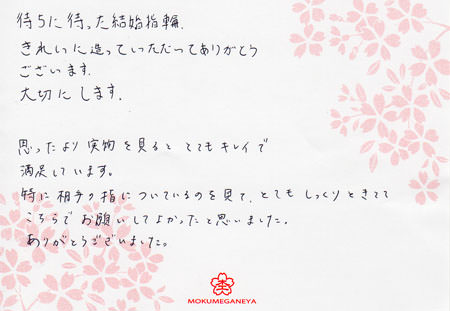 待ちに待った結婚指輪、
きれいに造っていただいてありがとう
ございます。
大切にします。
思ったより実物を見ると とてもキレイで
満足しています。
特に相手の指についているのを見て、とてもしっくりときてて
こちらでお願いしてよかったと思いました。
ありがとうございました。
MOKUMEGANEYA